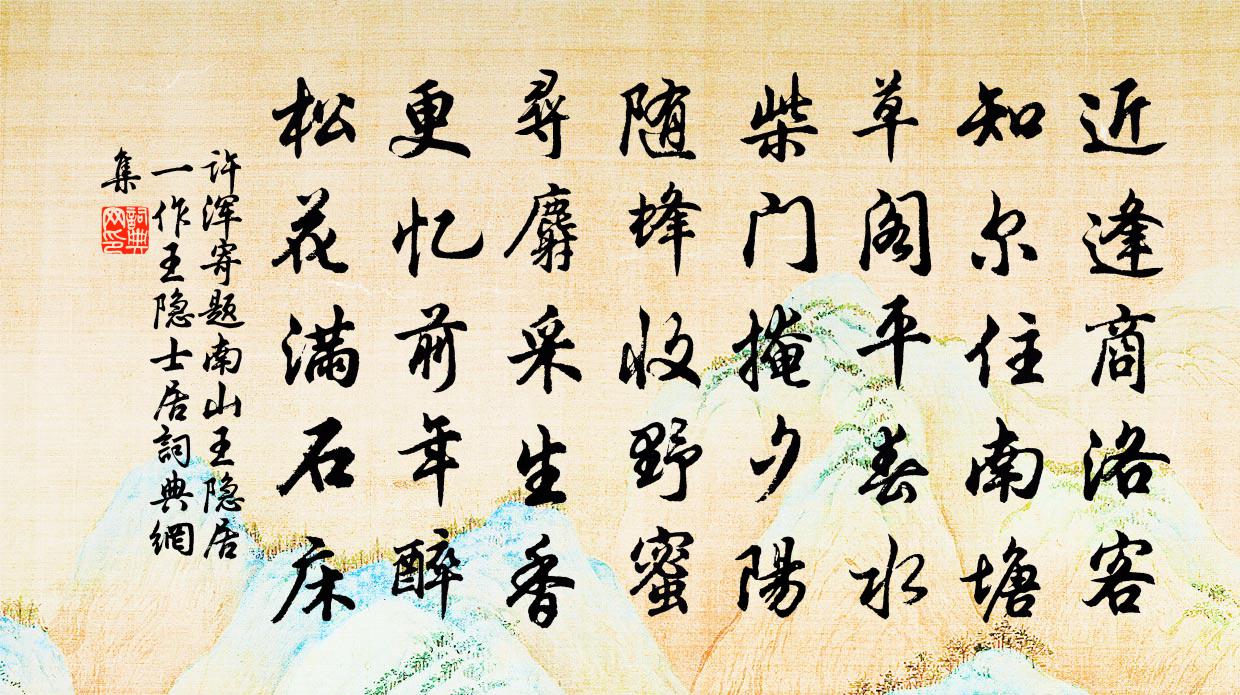 近逢商洛客
知尔住南塘
草阁平春水
柴门掩夕陽
随蜂收野蜜
尋麝采生香
更忆前年醉
松花满石床
许渾寄题南山王隐居
一作王隐士居詞典網
集
詞典
网印